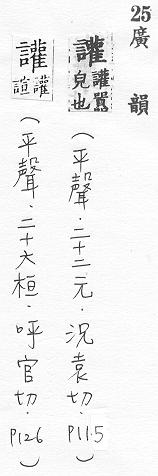 25廣韻
讙讙嚻皃也(平聲．二十二元．況袁切．P115)
讙讙諠(平聲．二十六桓．呼官切．P126)